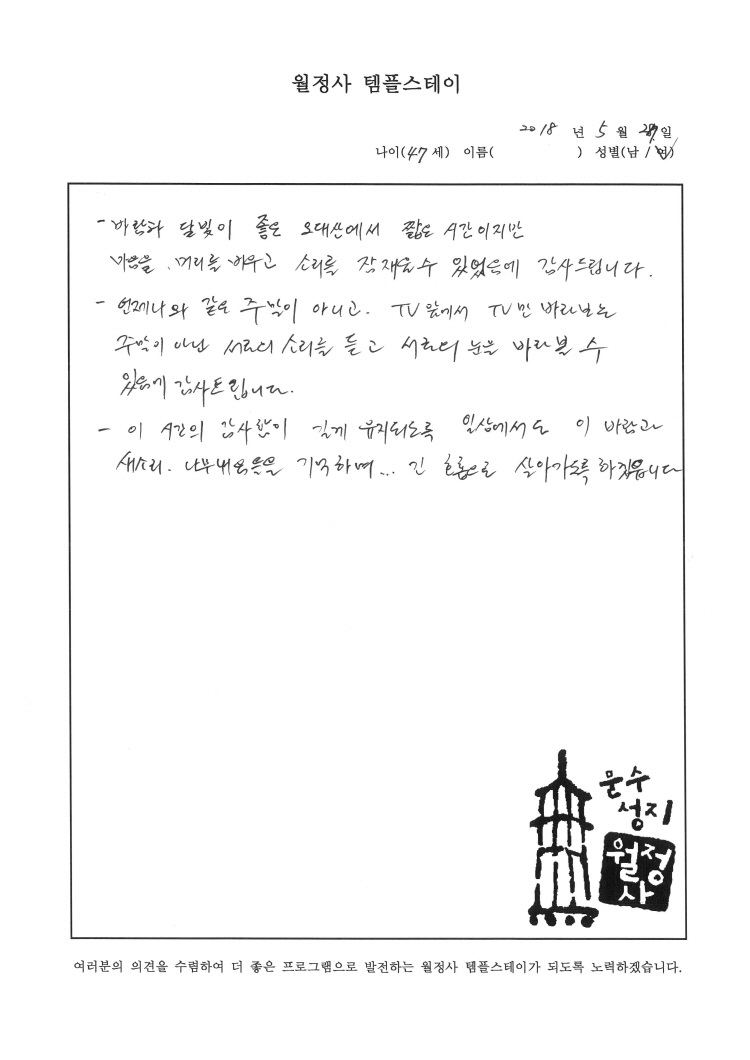 월정사 템플스테이
2018 년 5 월 27일
나이(47 세) 이름( ) 성별(남 / 여)
- 바람과 달빛이 좋은 오대산에서 짧은 시간이지만
마음을, 머리를 비우고 소리를 잠재울 수 있었음에 감사드립니다.
- 언제나와 같은 주말이 아니고. TV 앞에서 TV만 바라보는
주말이 아닌 서로의 소리를 듣고 서로의 눈을 바라볼 수
있음에 감사드립니다.
- 이 시간의 감사함이 길게 유지되도록 일상에서도 이 바람과
새소리. 나무내음들을 기억하며... 긴 호흡으로 살아가도록 하겠습니다
문수
성지
월정
사
여러분의 의견을 수렴하여 더 좋은 프로그램으로 발전하는 월정사 템플스테이가 되도록 노력하겠습니다.